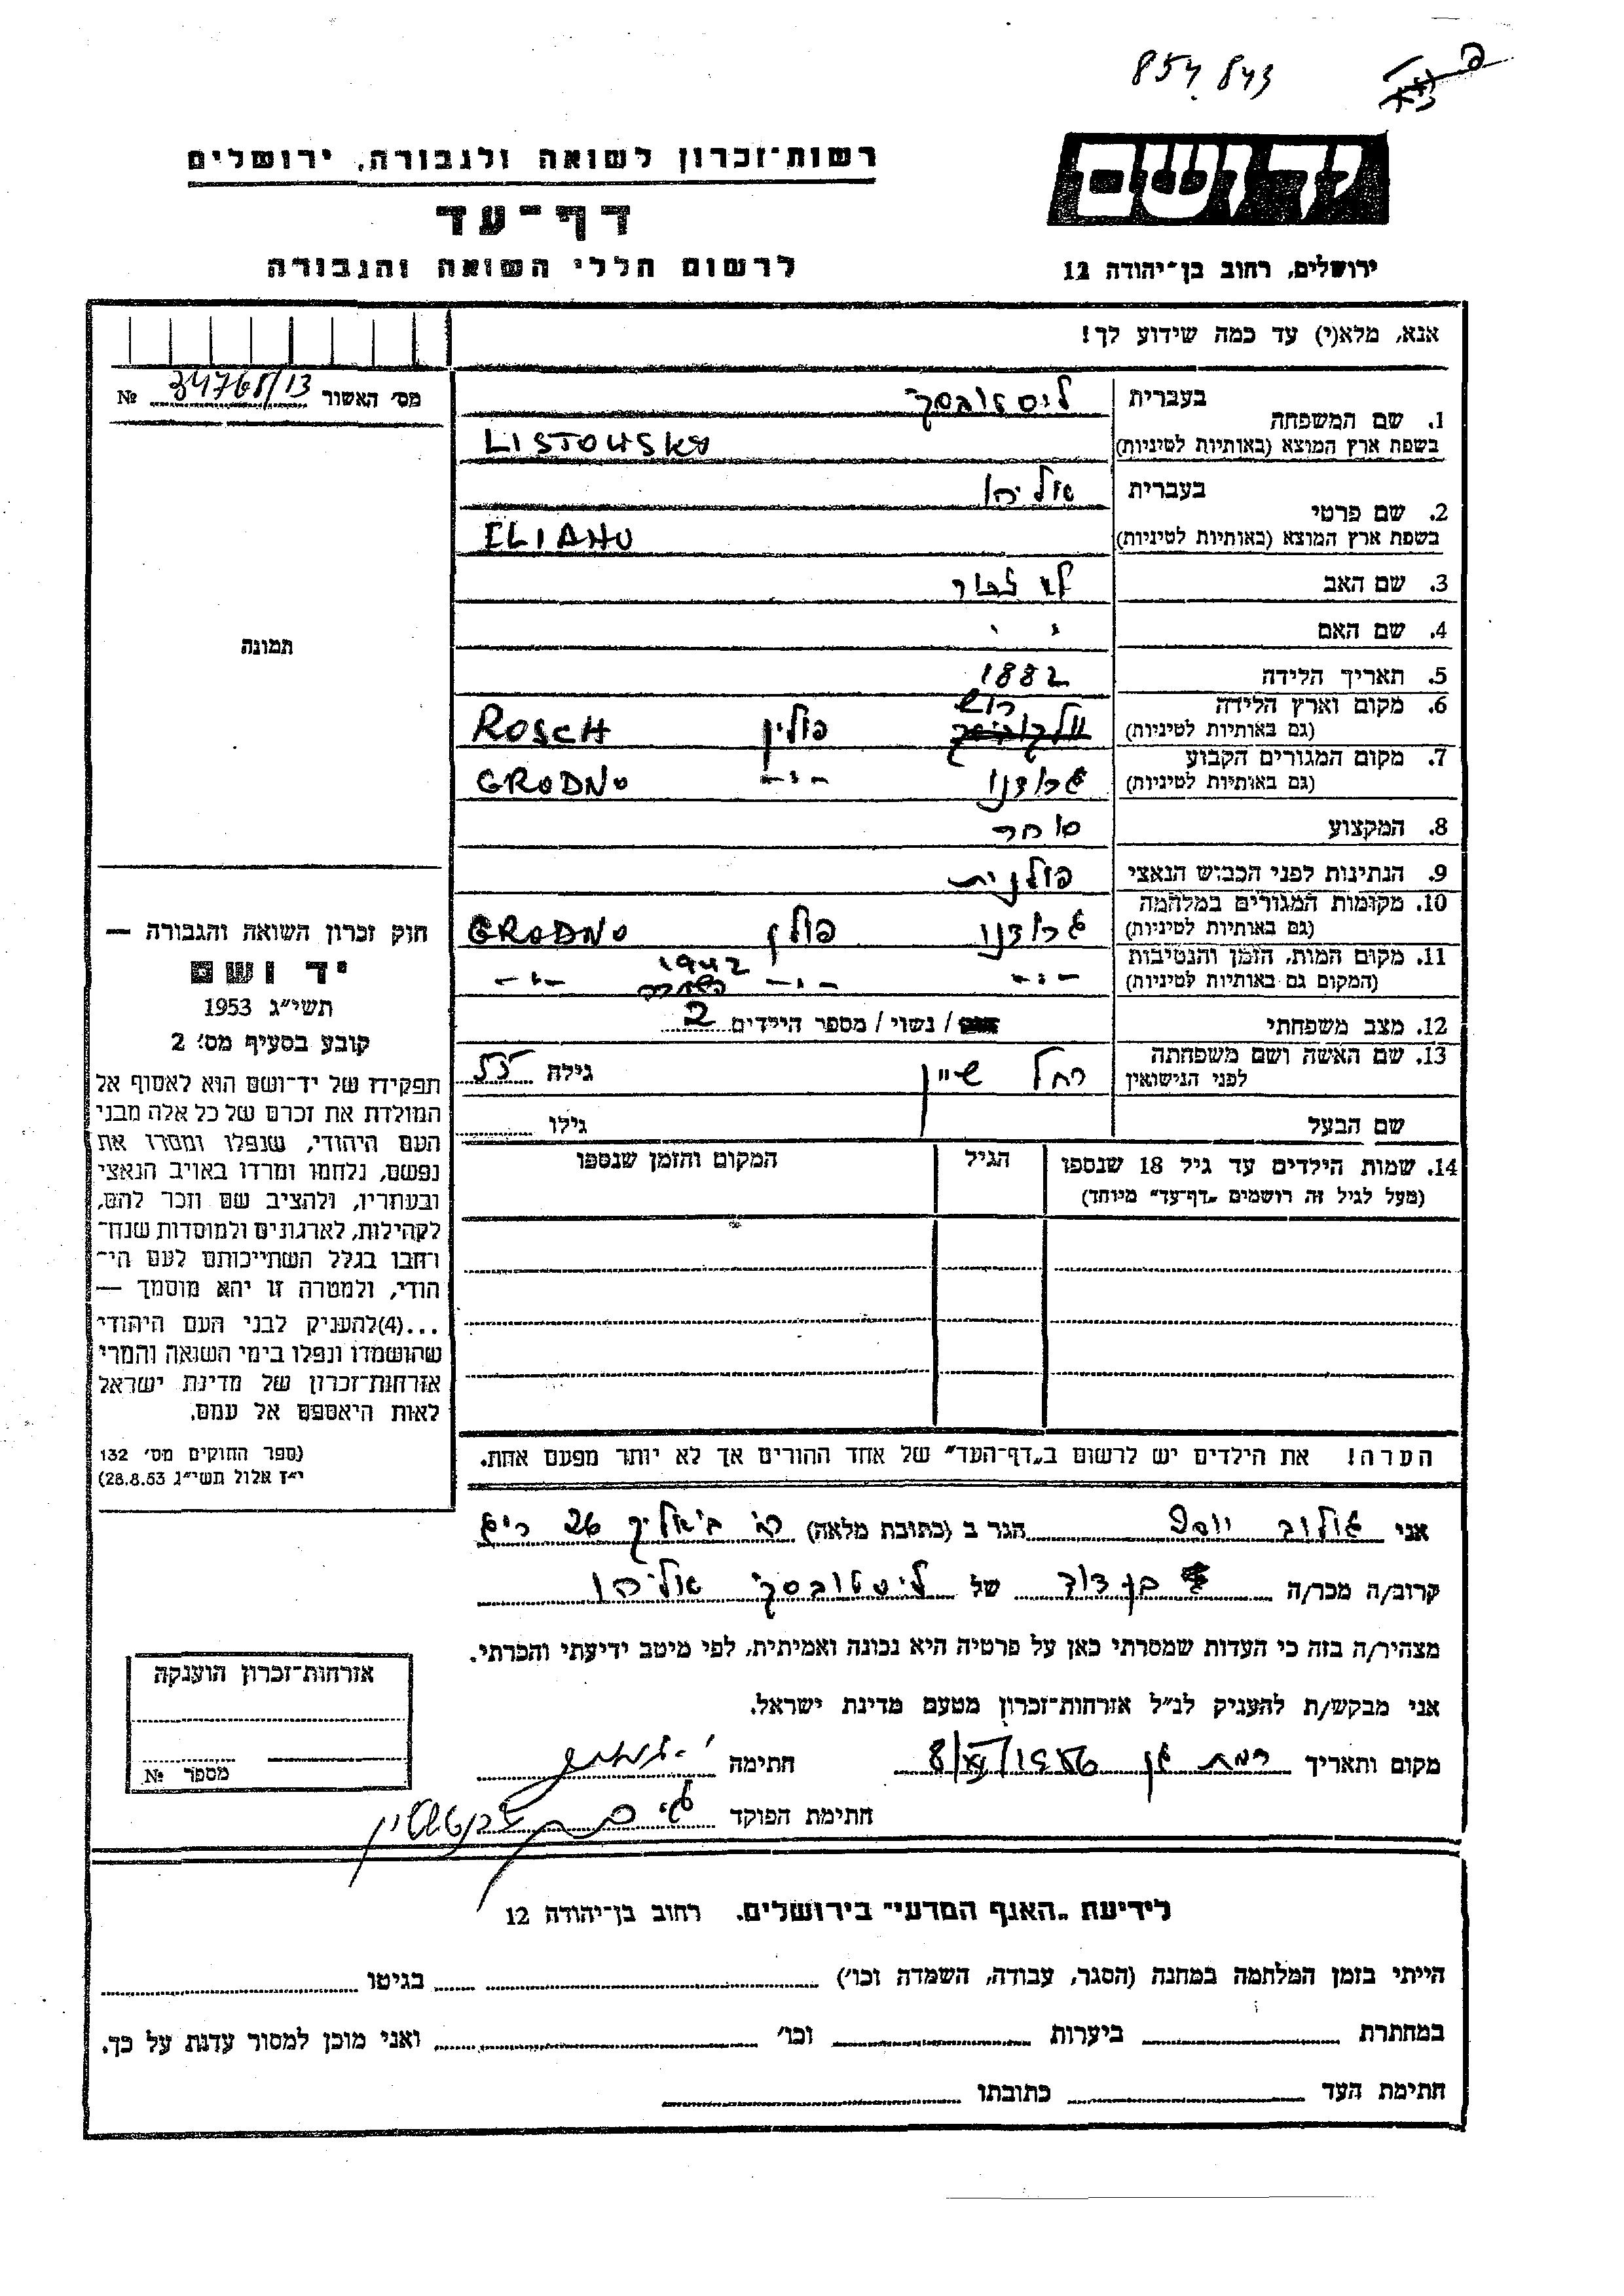 854.843
יד ושם
רשות־זכרון לשואה ולגבורה, ירושלים
דף־עד
לרשום חללי השואה והגבורה
ירושלים, רחוב בן־יהודה 12
אנא, מלא(י) עד כמה שידוע לך!
מס׳ האשור 34768/13 №
1. שם המשפחה בעברית ליסטובסקי
בשפת ארץ המוצא (באותיות לטיניות) LISTOWSKI
2. שם פרטי בעברית אליהו
בשפת ארץ המוצא (באותיות לטיניות) ELIAHU
3. שם האב לא זכור
4. שם האם " "
5. תאריך הלידה 1882
6. מקום וארץ הלידה רוש
(גם באותיות לטיניות) פולין ROSCH
7. מקום המגורים הקבוע
(גם באותיות לטיניות) גרודנו -"- GRODNO
8. המקצוע סוחר
9. הנתינות לפני הכבוש הנאצי פולנית
10. מקומות המגורים במלחמה
(גם באותיות לטיניות) גרודנו פולין GRODNO
11. מקום המות, הזמן והנסיבות 1942
(המקום גם באותיות לטיניות) -"- -"- בשואה -"-
12. מצב משפחתי / נשוי / מספר הילדים 2
13. שם האשה ושם משפחתה
לפני הנישואין רחל שיין גילה 55
שם הבעל גילו
14. שמות הילדים עד גיל 18 שנספו הגיל המקום והזמן שנספו
(מעל לגיל זה רושמים „דף־עד" מיוחד)
הערה! את הילדים יש לרשום ב„דף־העד" של אחד ההורים אך לא יותר מפעם אחת.
תמונה
חוק זכרון השואה והגבורה —
יד ושם
תשי״ג 1953
קובע בסעיף מס׳ 2
תפקידו של יד־ושם הוא לאסוף אל
המולדת את זכרם של כל אלה מבני
העם היהודי, שנפלו ומסרו את
נפשם, נלחמו ומרדו באויב הנאצי
ובעוזריו, ולהציב שם וזכר להם,
לקהילות, לארגונים ולמוסדות שנח־
רחבו בגלל השתייכותם לעם הי־
הודי, ולמטרה זו יהא מוסמך —
...(4)להעניק לבני העם היהודי
שהושמדו ונפלו בימי השואה והמרי
אזרחות־זכרון של מדינת ישראל
לאות היאספם אל עמם.
(ספר החוקים מס׳ 132
י״ז אלול תשי״ג 28.8.53)
אני יוסף הגר ב (כתובת מלאה) ביאליק 26
קרוב/ה מכר/ה בן דוד של ליסטובסקי אליהו
מצהיר/ה בזה כי העדות שמסרתי כאן על פרטיה היא נכונה ואמיתית, לפי מיטב ידיעתי והכרתי.
אני מבקש/ת להעניק לנ״ל אזרחות־זכרון מטעם מדינת ישראל.
מקום ותאריך רמת גן 8/XI/1956 חתימה
חתימת הפוקד
אזרחות־זכרון הוענקה
מספר №
לידיעת „האגף המדעי" בירושלים, רחוב בן־יהודה 12
הייתי בזמן המלחמה במחנה (הסגר, עבודה, השמדה וכו׳) בגיטו
במחתרת ביערות וכו׳ ואני מוכן למסור עדות על כך.
חתימת העד כתובתו